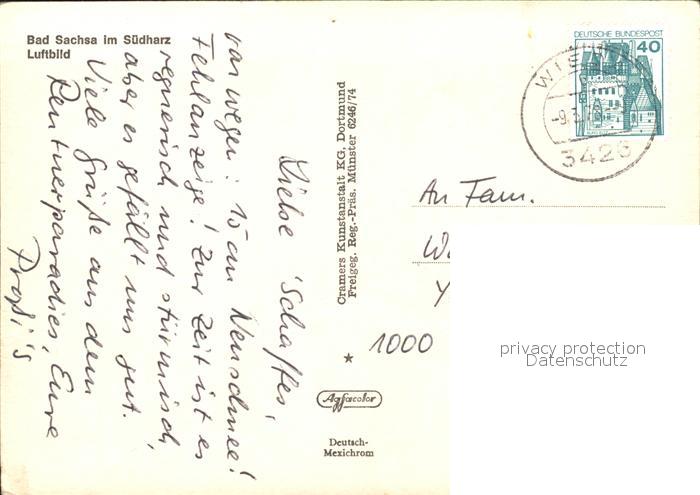 Bad Sachsa im Südharz
Luftbild
Liebe 'Schaffes',
von wegen! 15 cm Neuschnee!
Fehlanzeige! Zur Zeit ist es
regnerisch und stürmisch,
aber es gefällt uns gut.
Viele Grüße aus dem
Rentnerparadies, Eure
Cramers Kunstanstalt KG, Dortmund
Freigeg. Reg.-Präs. Münster 6246/74
Agfacolor
Deutsch-
Mexichrom
DEUTSCHE BUNDESPOST
40
3426
An Fam.
1000
privacy protection
Datenschutz